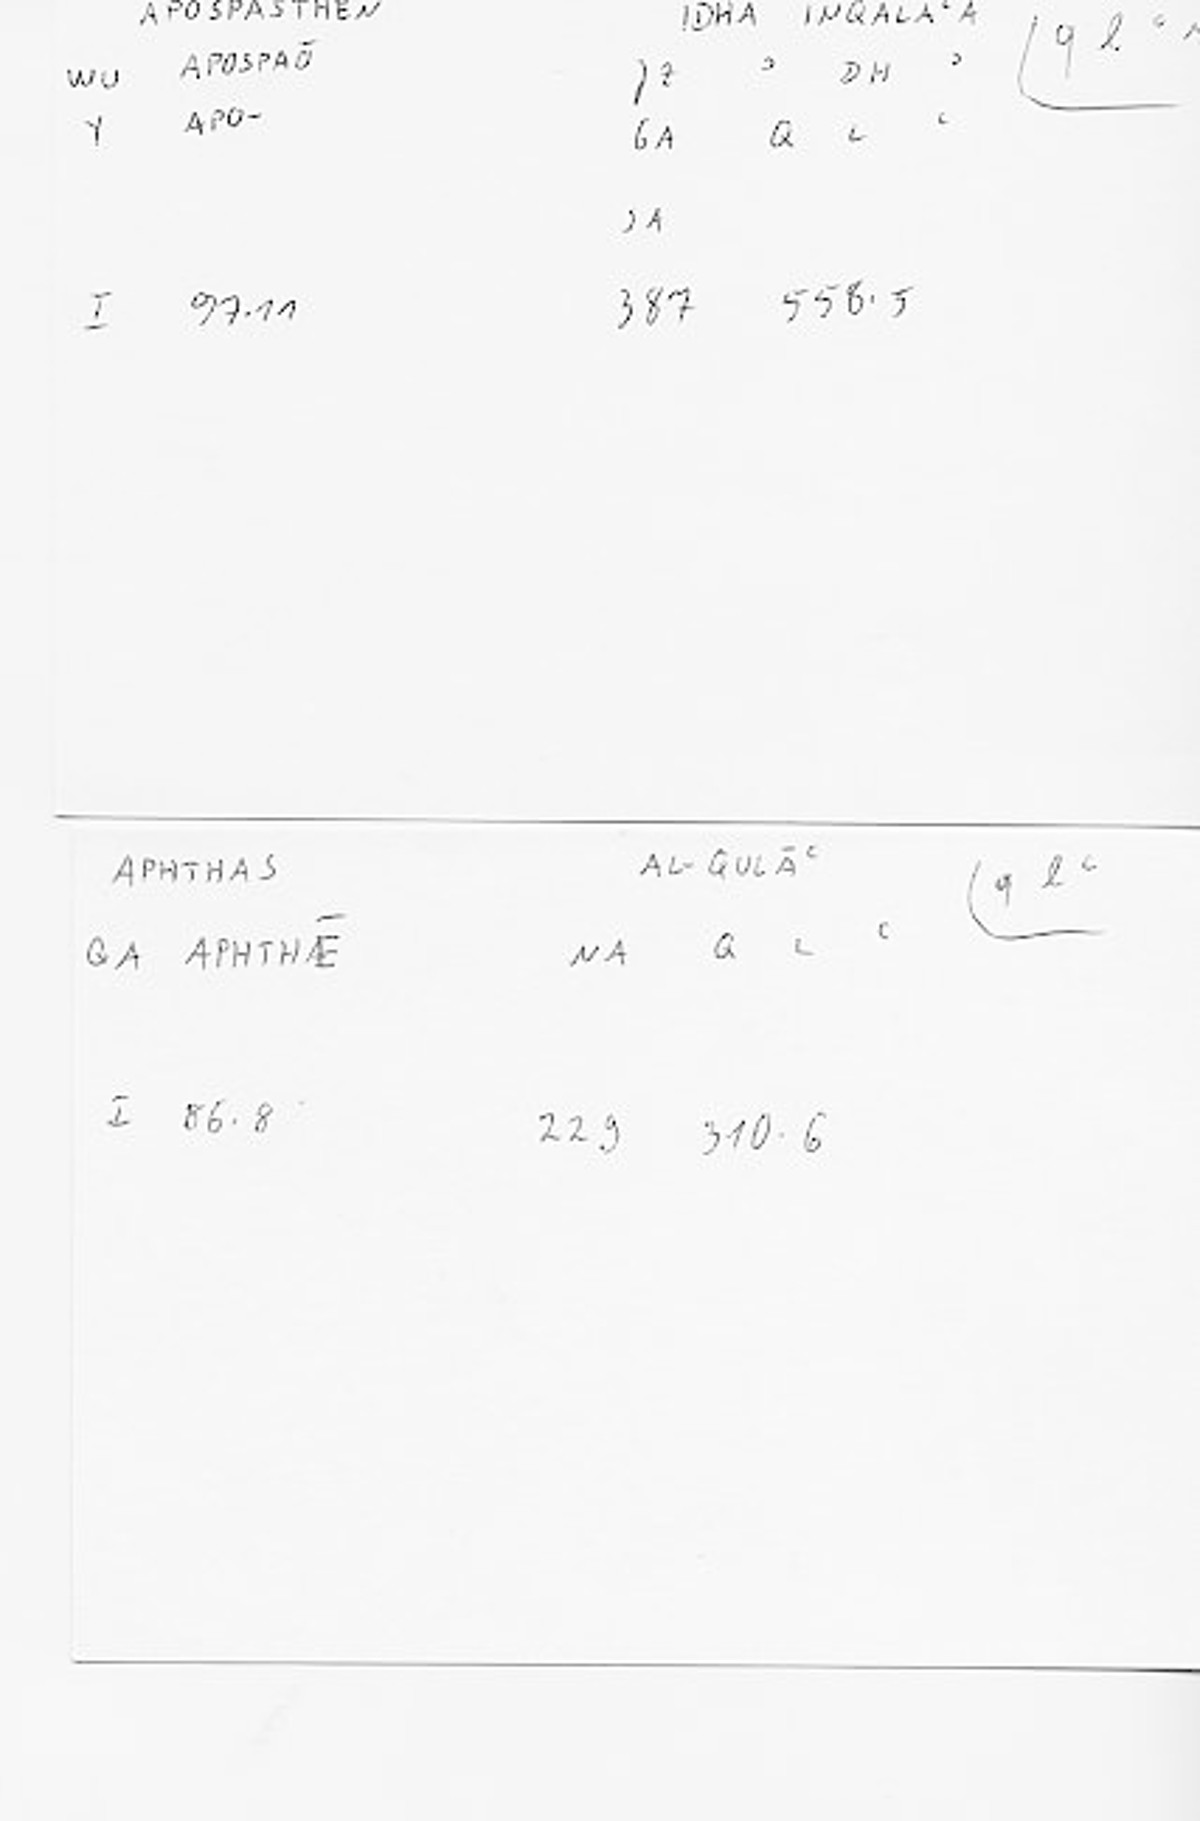 APOSPASTHEN IDHA INQALAʿA q l ʿ
WU APOSPAŌ ʾ DH ʾ
Y APO- GA Q L ʿ
ʾA
I 97.11 387 558.5
APHTHAS AL-QULĀʿ q l ʿ
GA APHTHĒ NA Q L ʿ
I 86.8 229 310.6